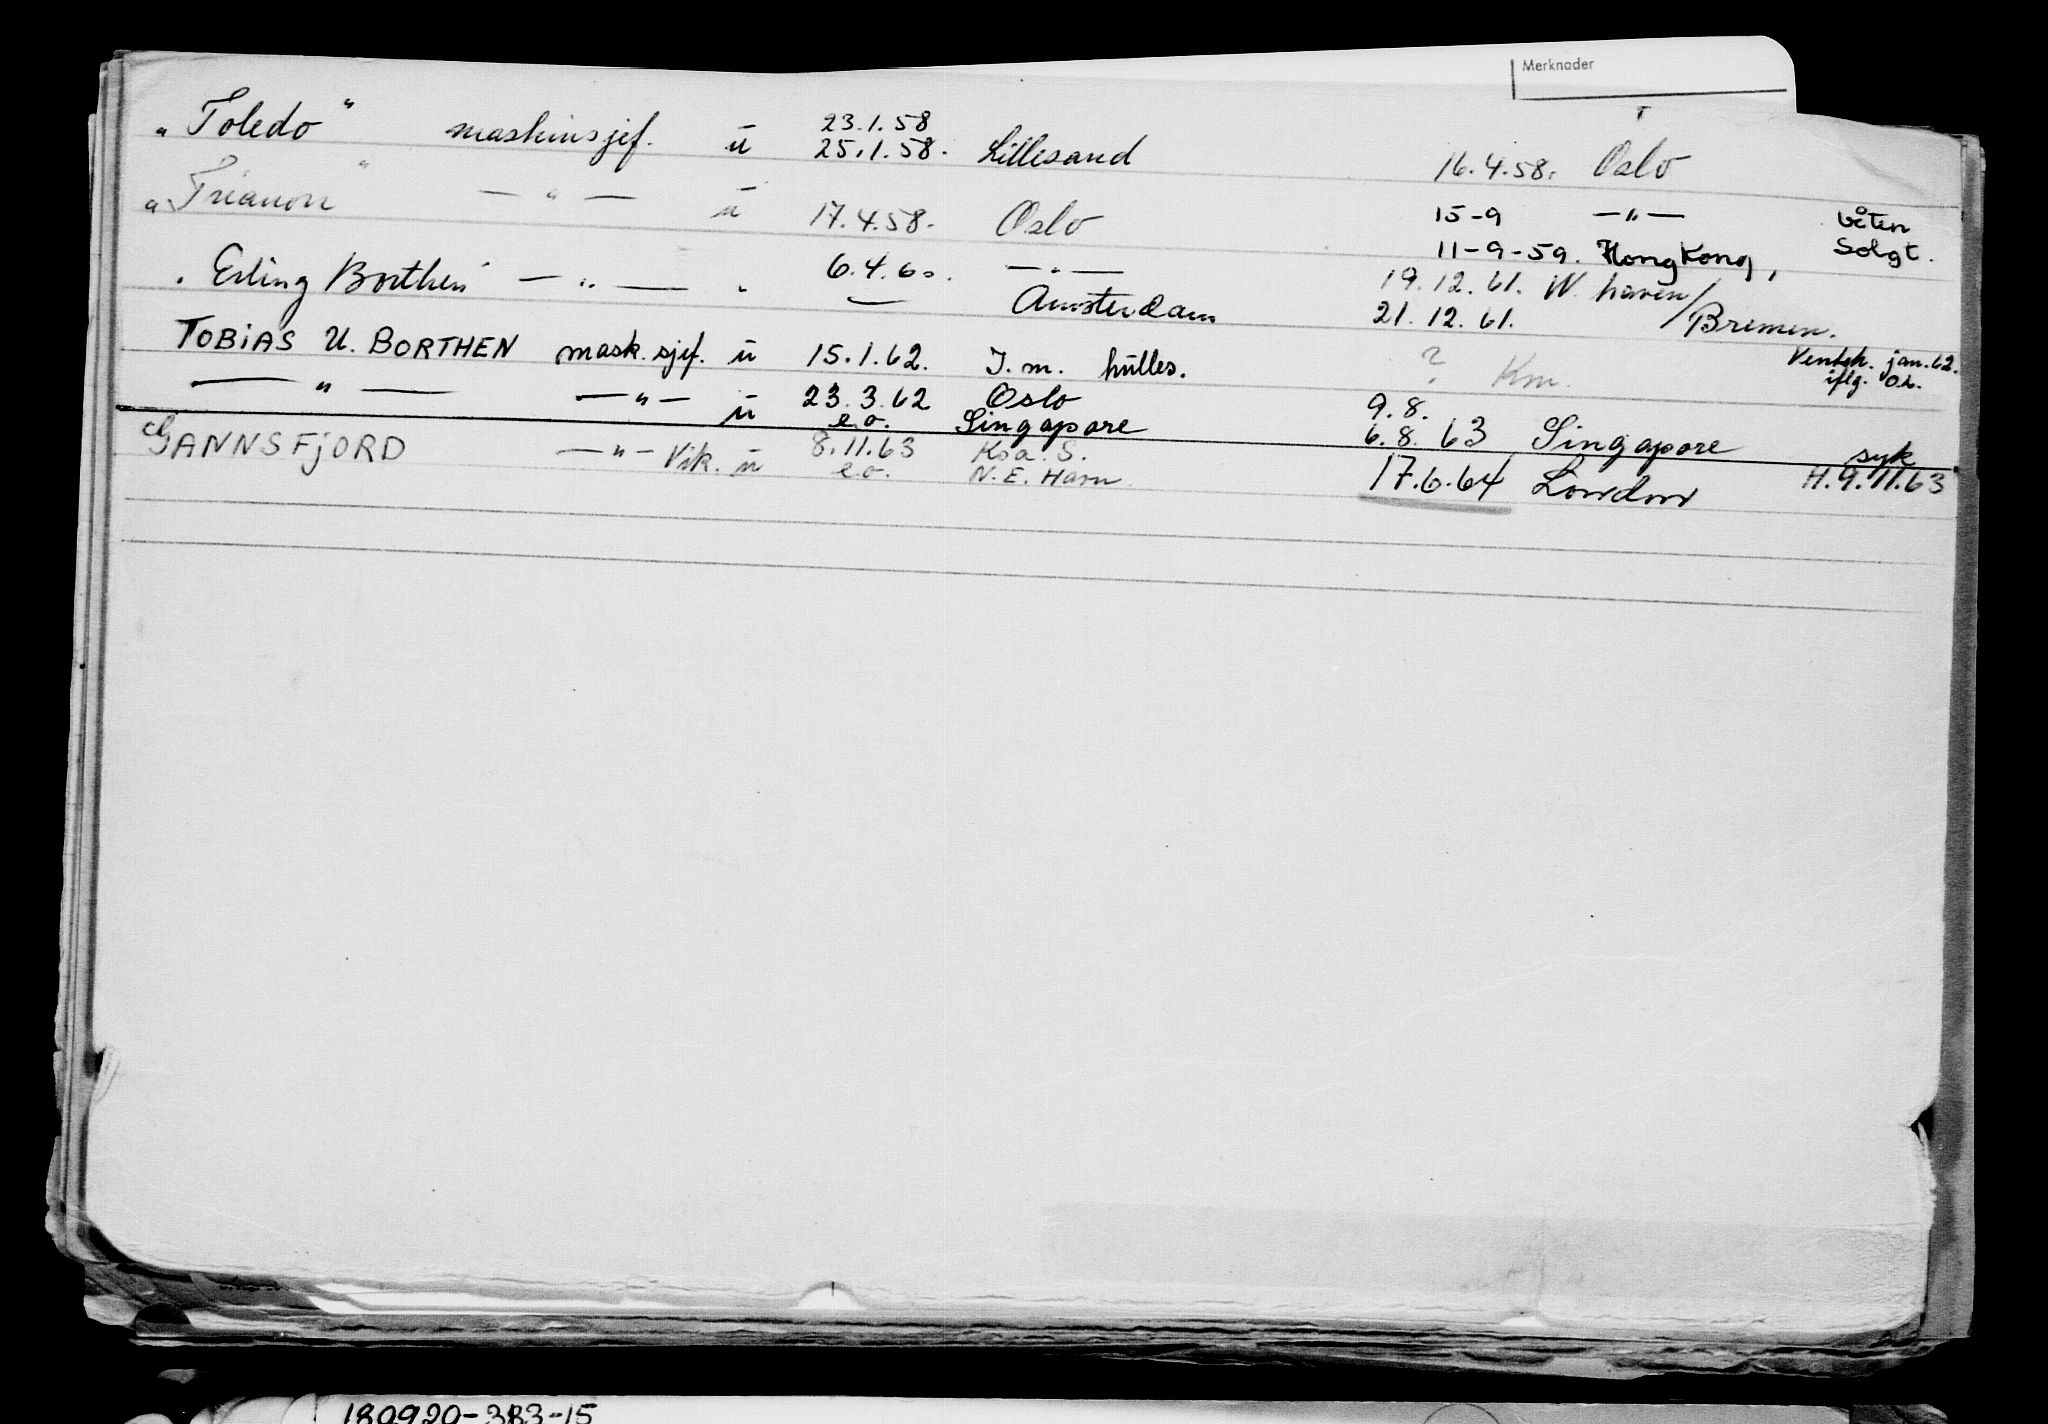 Merknader
"Toledo" maskinsjef. ü 23.1.58 25.1.58. Lillesand 16.4.58. Oslo
"Trianon" — " — ü 17.4.58. Oslo 15-9 —"— båten
11-9-59. HongKong, Solgt.
"Erling Borthen" — " — " 6.4.60. — " — 19.12.61. W. haven/
— Amsterdam 21.12.61. Bremen.
TOBIAS U. BORTHEN mask.sjef. ü 15.1.62. I.m. hülles. ? Km. Ventet. jan.62.
— " — — " — ü 23.3.62 Oslo 9.8. iflg. O.L.
e.o. Singapore 6.8.63 Singapore syk
GANNSFJORD — " — Vik. ü 8.11.63 Koa. S. 17.6.64 London H.9.11.63
e.o. N.E. Havn
180920-383-15